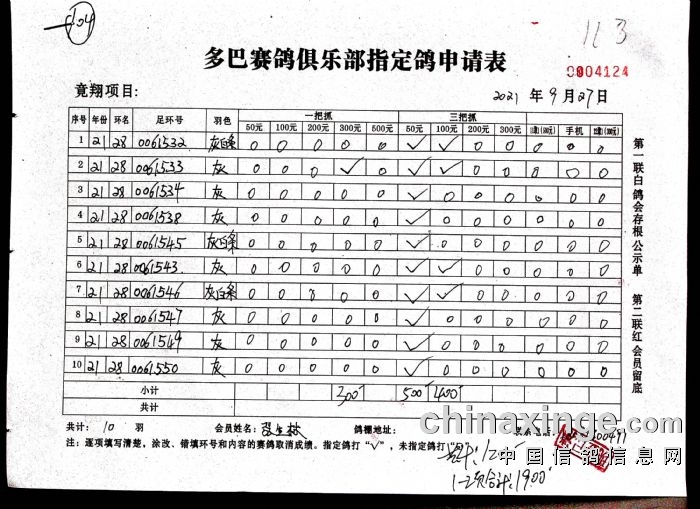 104
113
多巴赛鸽俱乐部指定鸽申请表
0004124
竟翔项目:
2021 年 9 月 27 日
序号 年份 环名 足环号 羽色 一把抓 三把抓
50元 100元 200元 300元 500元 50元 100元 200元 300元 手机
1 21 28 0061532 灰白条 0 0 0 0 0 √ √ 0 0 0 0 0
2 21 28 0061533 灰 0 0 0 √ 0 √ √ 0 0 0 0 0
3 21 28 0061534 灰 0 0 0 0 0 √ 0 0 0 0 0 0
4 21 28 0061538 灰 0 0 0 0 0 √ 0 0 0 0 0 0
5 21 28 0061545 灰白条 0 0 0 0 0 √ 0 0 0 0 0 0
6 21 28 0061543 灰 0 0 0 0 0 √ √ 0 0 0 0 0
7 21 28 0061546 灰白条 0 0 0 0 0 √ √ 0 0 0 0 0
8 21 28 0061547 灰 0 0 0 0 0 √ 0 0 0 0 0 0
9 21 28 0061549 灰 0 0 0 0 0 √ 0 0 0 0 0 0
10 21 28 0061550 灰 0 0 0 0 0 √ 0 0 0 0 0 0
小计 300 500 400
共计
共计: 10 羽 会员姓名: 鸽棚地址:
注: 逐项填写清楚，涂改、错填环号和内容的赛鸽取消成绩。指定鸽打“√”，未指定鸽打“0”
1-2项合计:1900
第一联白 鸽会存根 公示单
第二联红 会员留底
chinaxinge.com
中国信鸽信息网